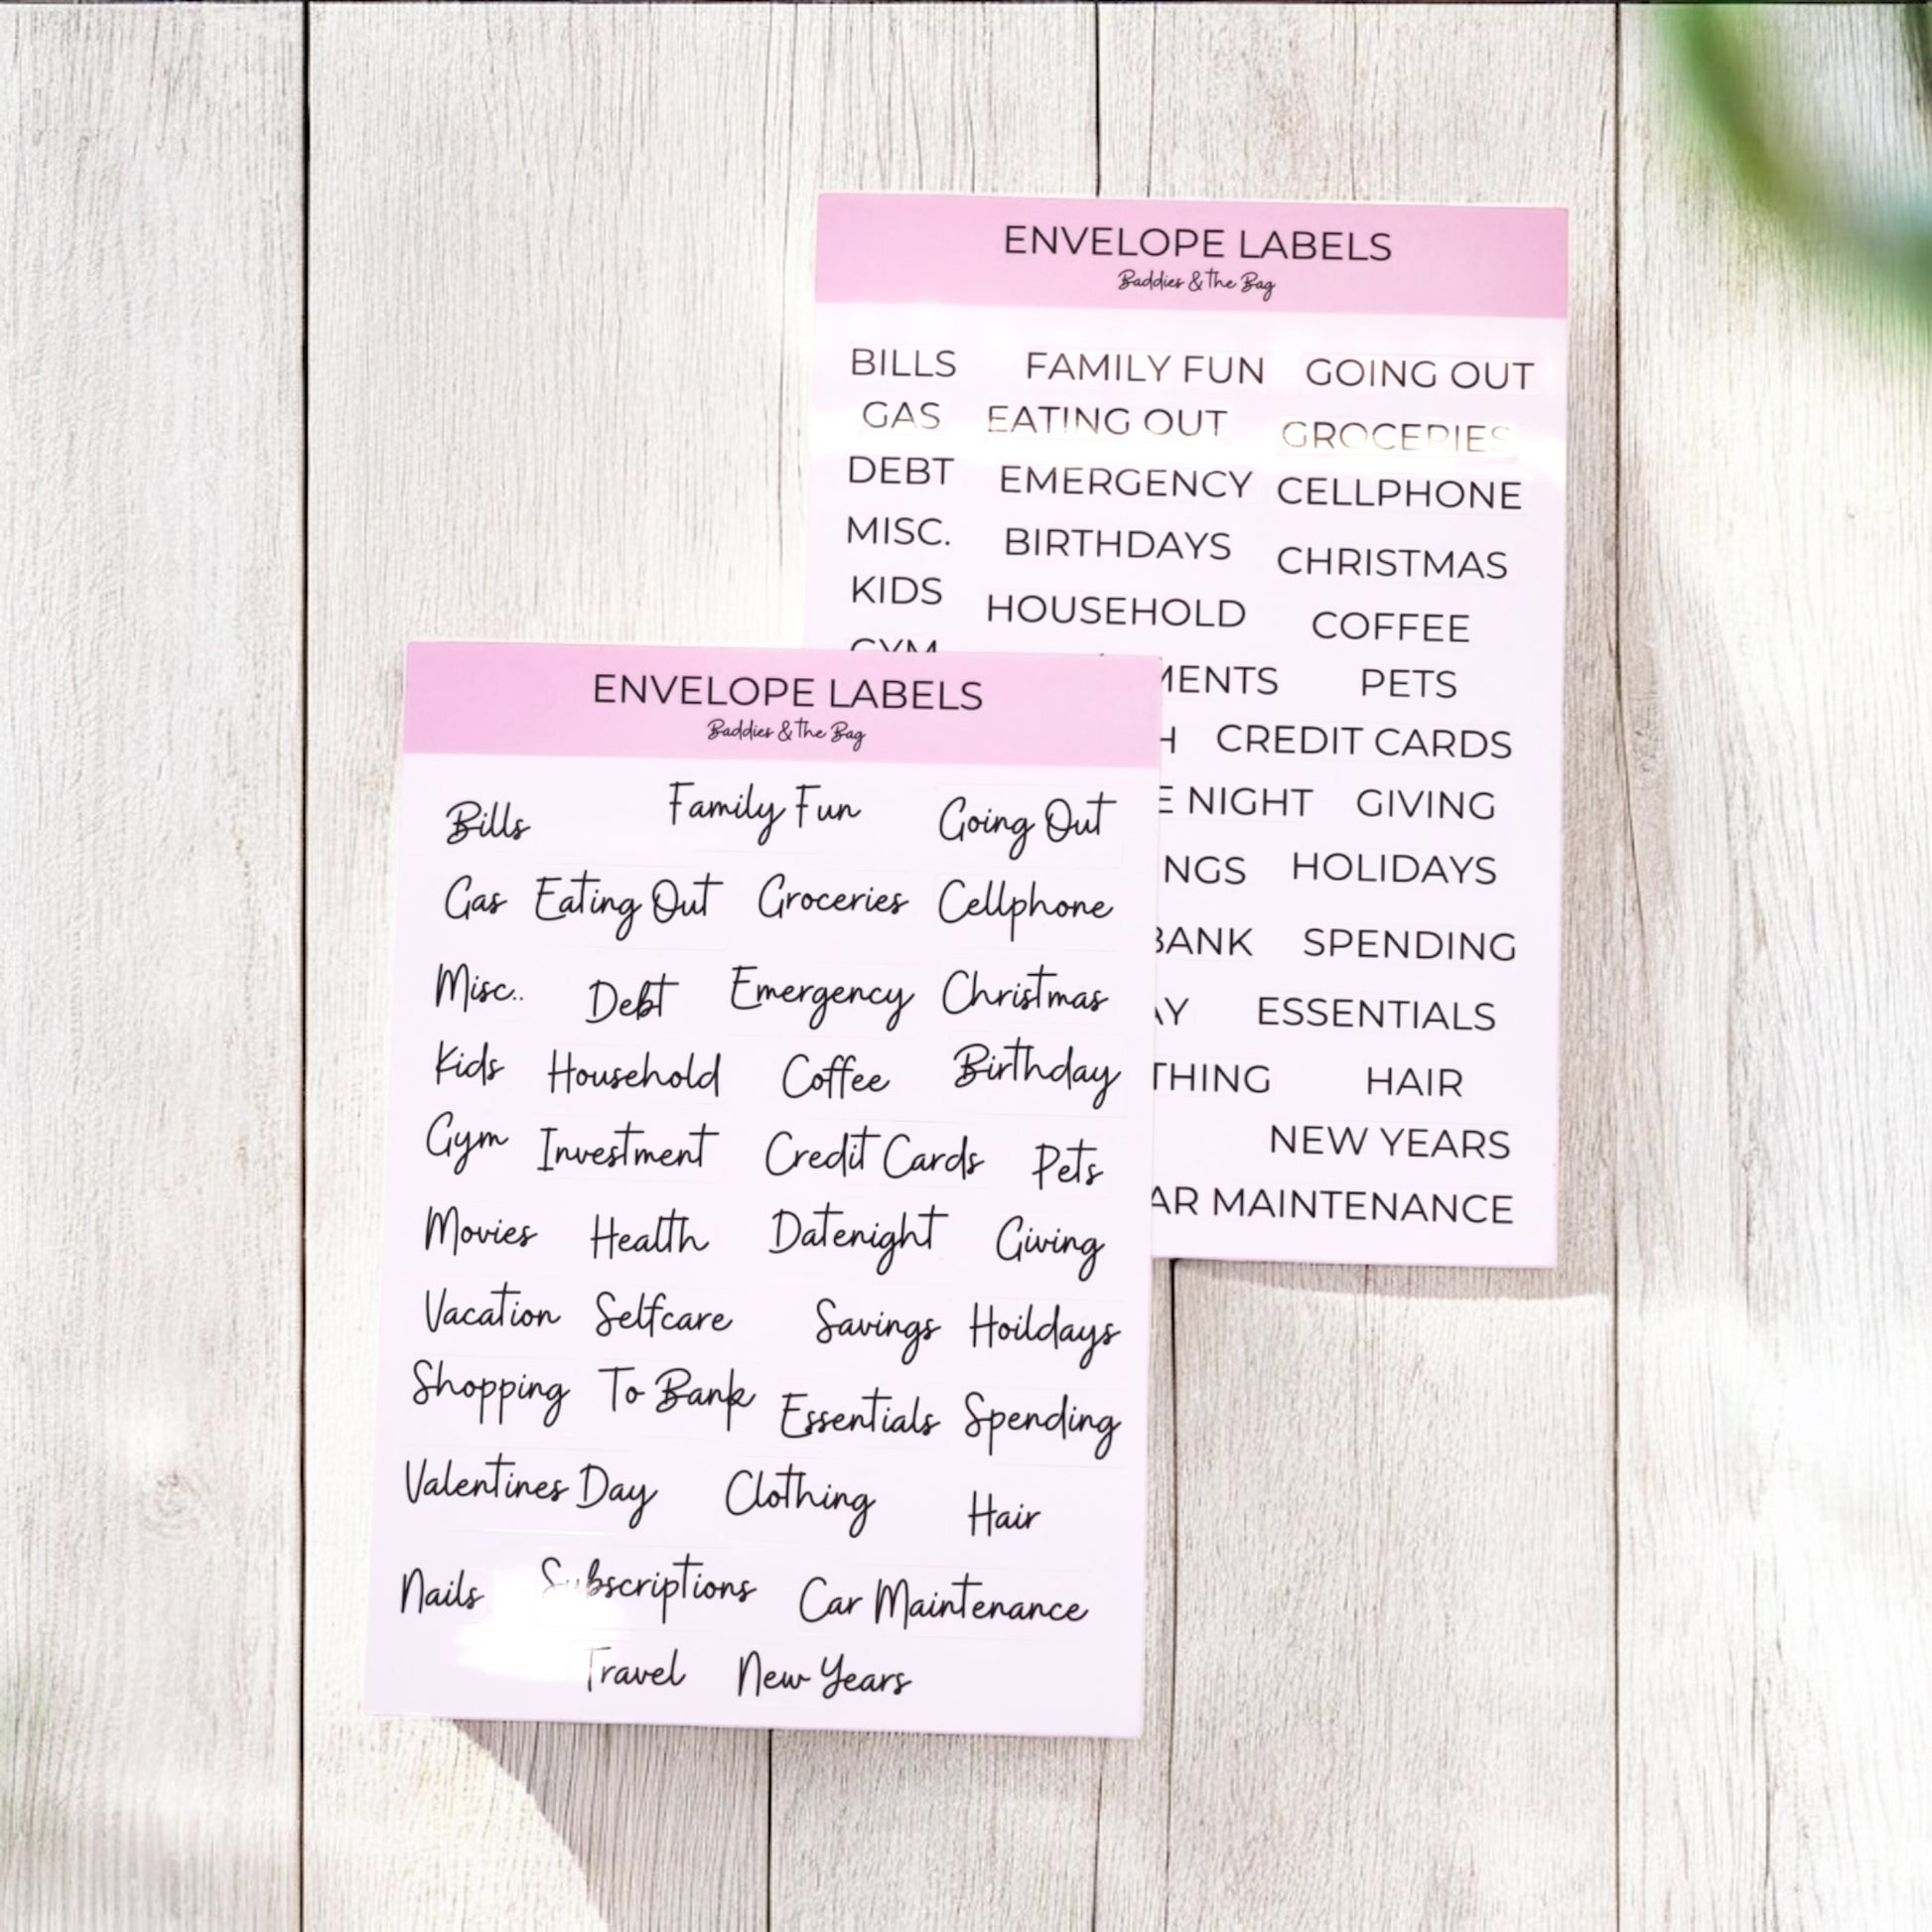 ENVELOPE LABELS
Baddies & The Bag
BILLS FAMILY FUN GOING OUT
GAS EATING OUT GROCERIES
DEBT EMERGENCY CELLPHONE
MISC. BIRTHDAYS CHRISTMAS
KIDS HOUSEHOLD COFFEE
GYM MENTS PETS
H CREDIT CARDS
E NIGHT GIVING
NGS HOLIDAYS
BANK SPENDING
AY ESSENTIALS
THING HAIR
NEW YEARS
AR MAINTENANCE
ENVELOPE LABELS
Baddies & The Bag
Bills Family Fun Going Out
Gas Eating Out Groceries Cellphone
Misc.. Debt Emergency Christmas
Kids Household Coffee Birthday
Gym Investment Credit Cards Pets
Movies Health Datenight Giving
Vacation Selfcare Savings Hoildays
Shopping To Bank Essentials Spending
Valentines Day Clothing Hair
Nails Subscriptions Car Maintenance
Travel New Years